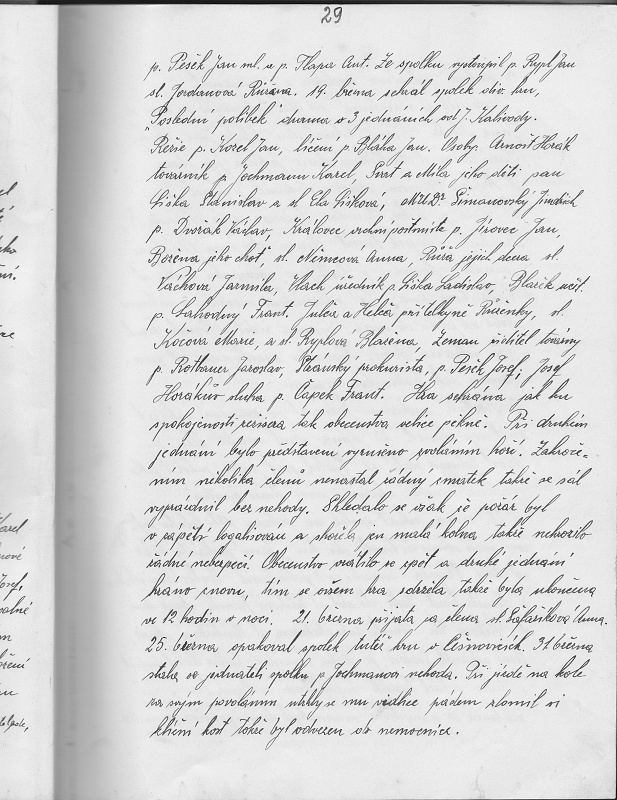 29
p. Pešek Jan ml. a p. Tlapa Ant. Ze spolku vystoupil p. Rypl Jan
sl. Jordanová Růžena. 19. března sehrál spolek div. hru,
"Poslední polibek" drama o 3 jednáních od J. Kalivody.
Režie p. Kozel Jan, líčení p. Bláha Jan. Osoby: Arnošt Horák
továrník p. Jochmann Karel, Svat a Míla jeho děti pan
Šiška Stanislav a sl. Ela Šišková, Simanovský Jindřich
p. Dvořák Václav, Královec vrchní poštmistr p. Jírovec Jan,
Božena jeho choť, sl. Němcová Anna, Růža jejich dcera sl.
Váchová Jarmila, Vlach úředník p. Šiška Ladislav, Blažek učit.
p. Lahodný Frant. Julča a Helča přítelkyně Růženky, sl.
Kočová Marie, a sl. Ryplová Blažena, Zeman ředitel továrny
p. Rotbauer Jaroslav, Stránský prokurista, p. Pešek Josef, Josef
Horákův sluha p. Čapek Frant. Hra sehrána jak ku
spokojenosti režiséra tak obecenstva velice pěkně. Při druhém
jednání bylo představení vyrušeno voláním hoří. Zakroče=
ním několika členů nenastal řádný zmatek takže se sál
vyprázdnil bez nehody. Shledalo se však že požár byl
v zápětí logalisován a shořela jen malá kolna takže nehrozilo
žádné nebezpečí. Obecenstvo vrátilo se zpět a druhé jednání
hráno znovu, tím se ovšem hra zdržela takže byla ukončena
ve 12 hodin v noci. 21. března přijata za člena sl. Šafaříková Anna.
25. března opakoval spolek tutéž hru v Češnovicích. 31 března
stala se jednateli spolku p. Jochmanovi nehoda. Při jízdě na kole
za svým povoláním utrhly se mu vidlice pádem zlomil si
klíční kost takže byl odvezen do nemocnice.